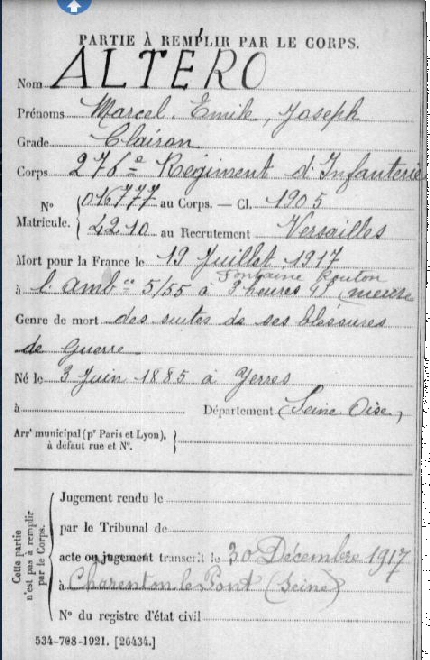 PARTIE À REMPLIR PAR LE CORPS.
Nom ALTERO
Prénoms Marcel, Emile, Joseph
Grade Clairon
Corps 276e Régiment d'Infanterie
N° Matricule. { 016777 au Corps. — Cl. 1905
4210 au Recrutement Versailles
Mort pour la France le 19 Juillet 1917
Fontaine Routon
à l'amb ce 5/55 à 3 heures (Meuse
Genre de mort des suites de ses blessures
de Guerre
Né le 3 Juin 1885 à Yerres
à Département (Seine Oise)
Arrt municipal (pr Paris et Lyon),
à défaut rue et N°.
Cette partie n'est pas à remplir par le Corps.
Jugement rendu le
par le Tribunal de
acte ou jugement transcrit le 30 Décembre 1917
à Charenton le Pont (Seine)
N° du registre d'état civil
534-708-1921. [26434.]